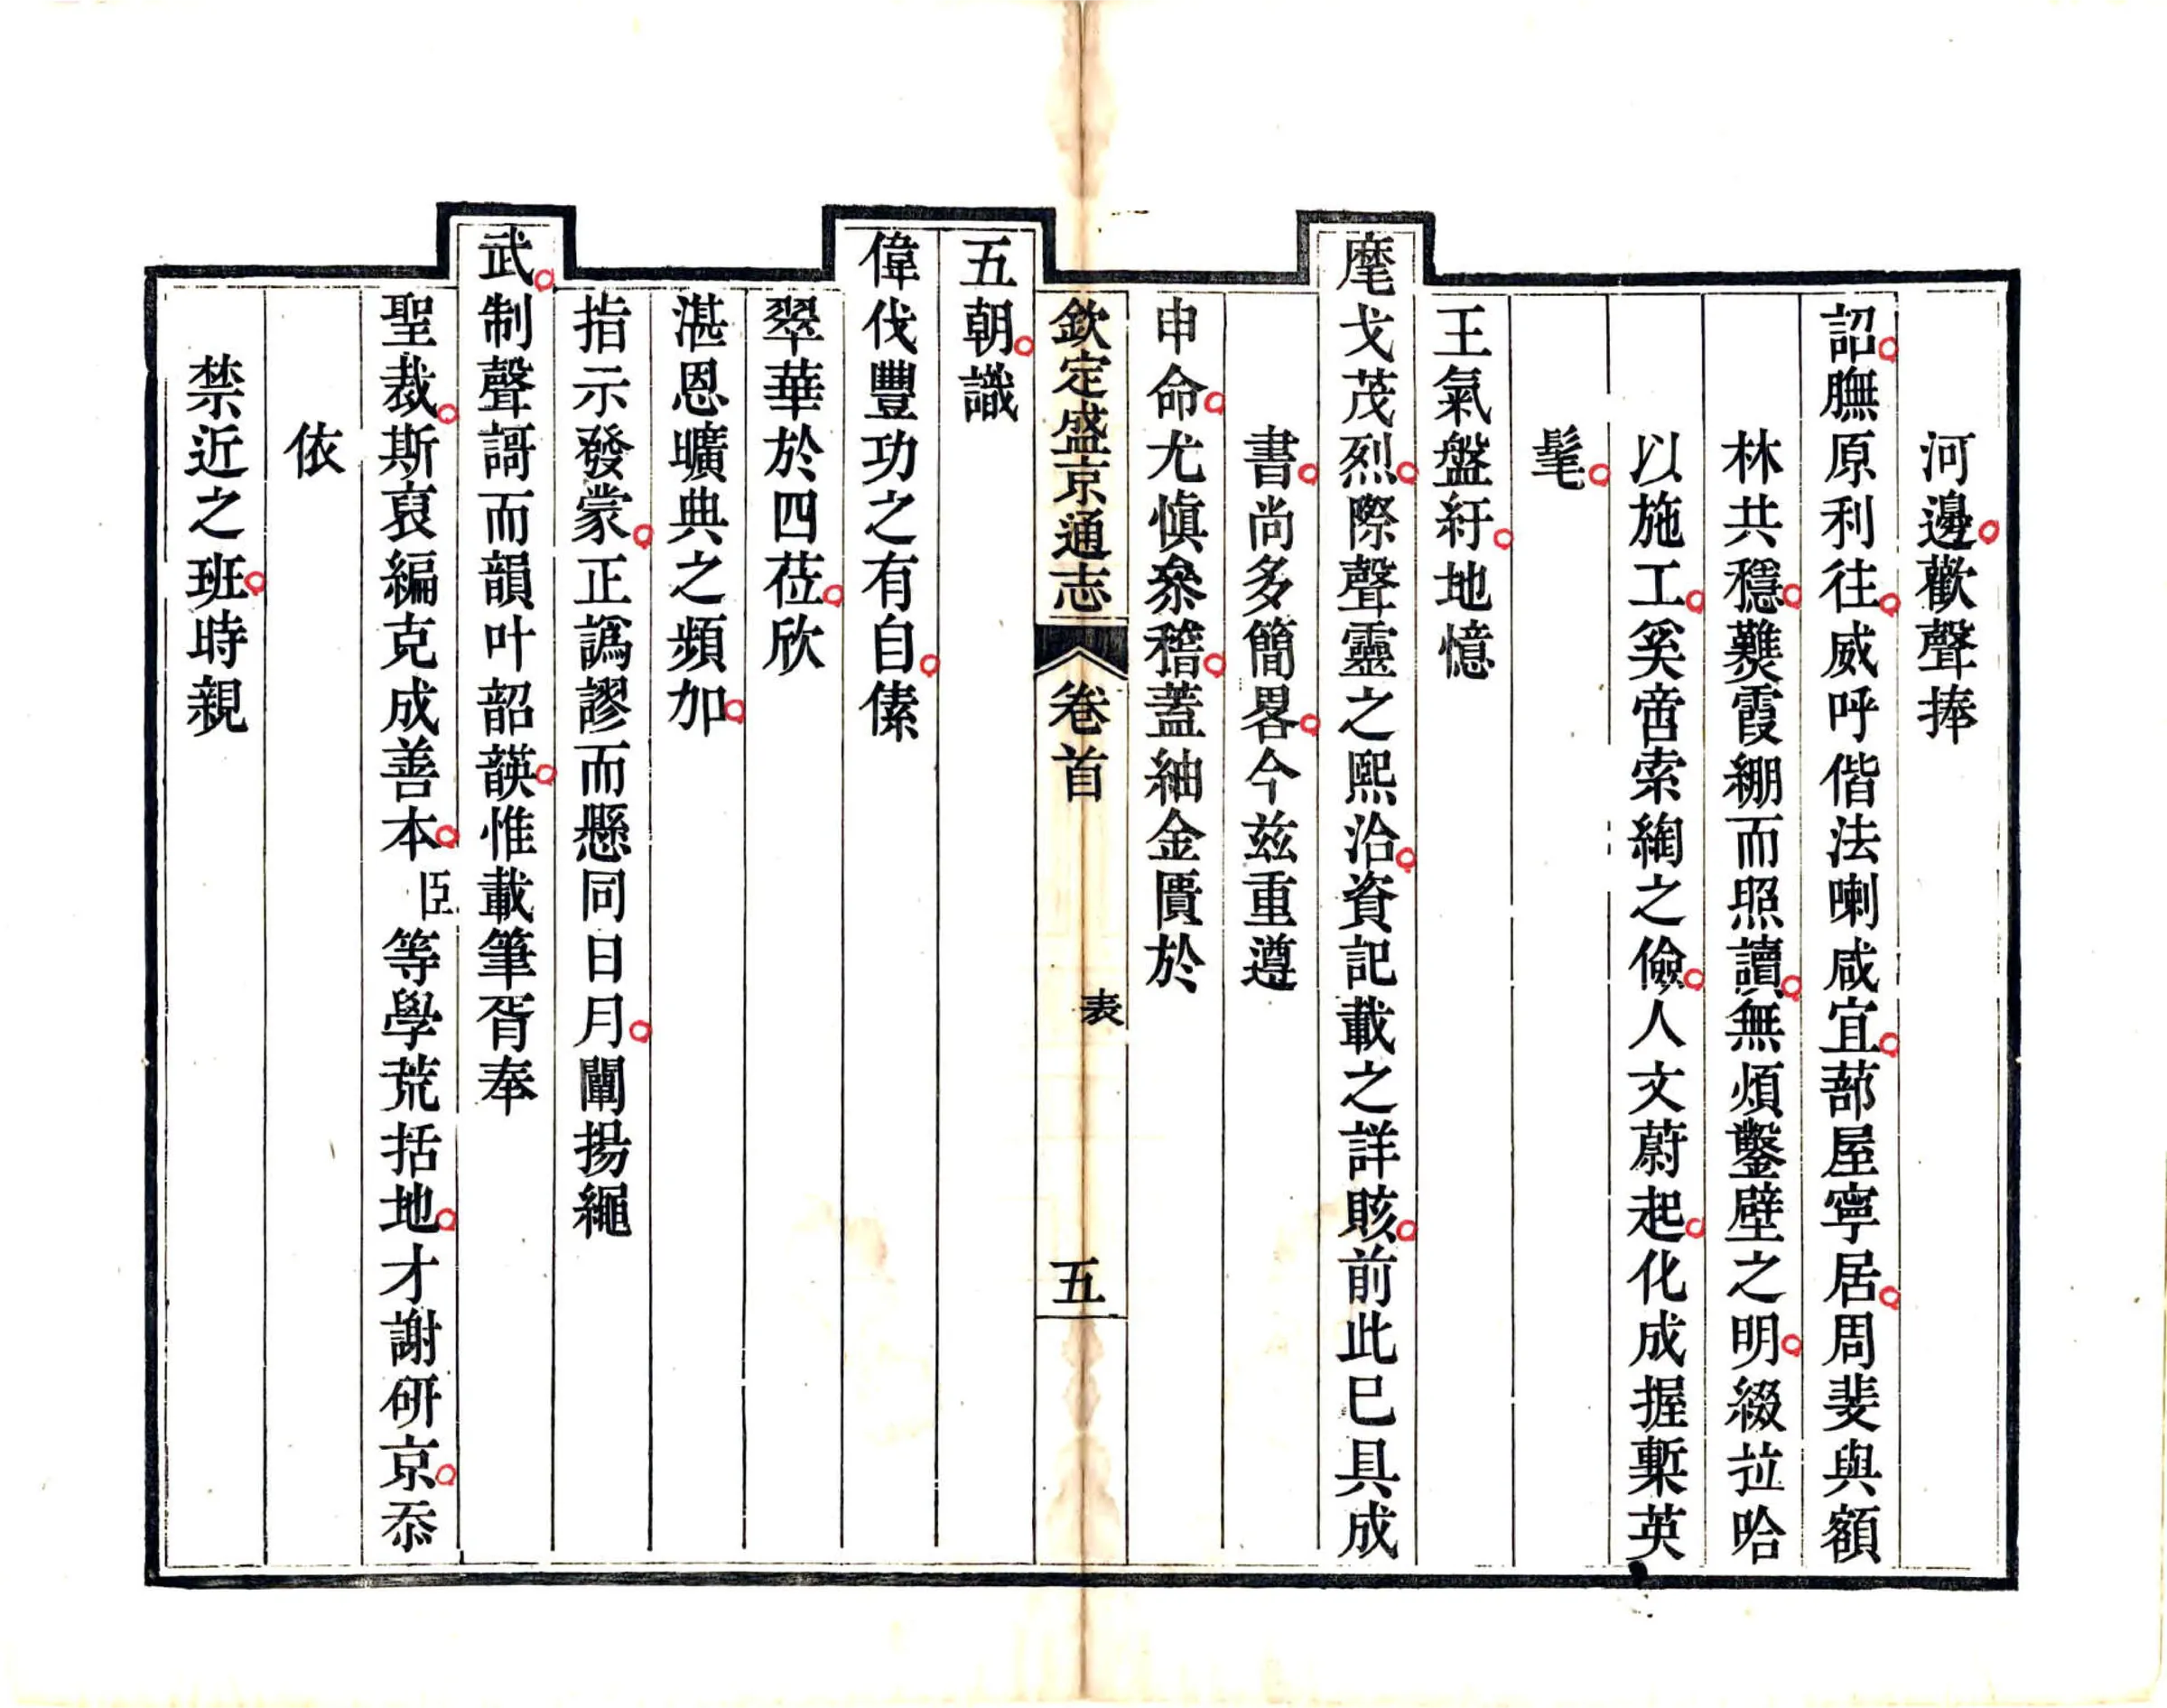 河邊歡聲捧
詔膴原利往威呼偕法喇咸宜蔀屋寧居周斐與額
林共穩爇霞綳而照讀無煩鑿壁之明綴拉哈
以施工奚啻索綯之儉人文蔚起化成握槧英
髦
王氣盤紆地憶
麾戈茂烈際聲靈之熙洽資記載之詳賅前此已具成
書尚多簡畧今兹重遵
申命尤慎叅稽蓋紬金匱於
欽定盛京通志 卷首 表 五
五朝識
偉伐豐功之有自傃
翠華於四莅欣
湛恩曠典之頻加
指示發蒙正譌謬而懸同日月闡揚繩
武制聲謌而韻叶韶韺惟載筆胥奉
聖裁斯裒編克成善本臣等學荒括地才謝硏京忝
依
禁近之班時親